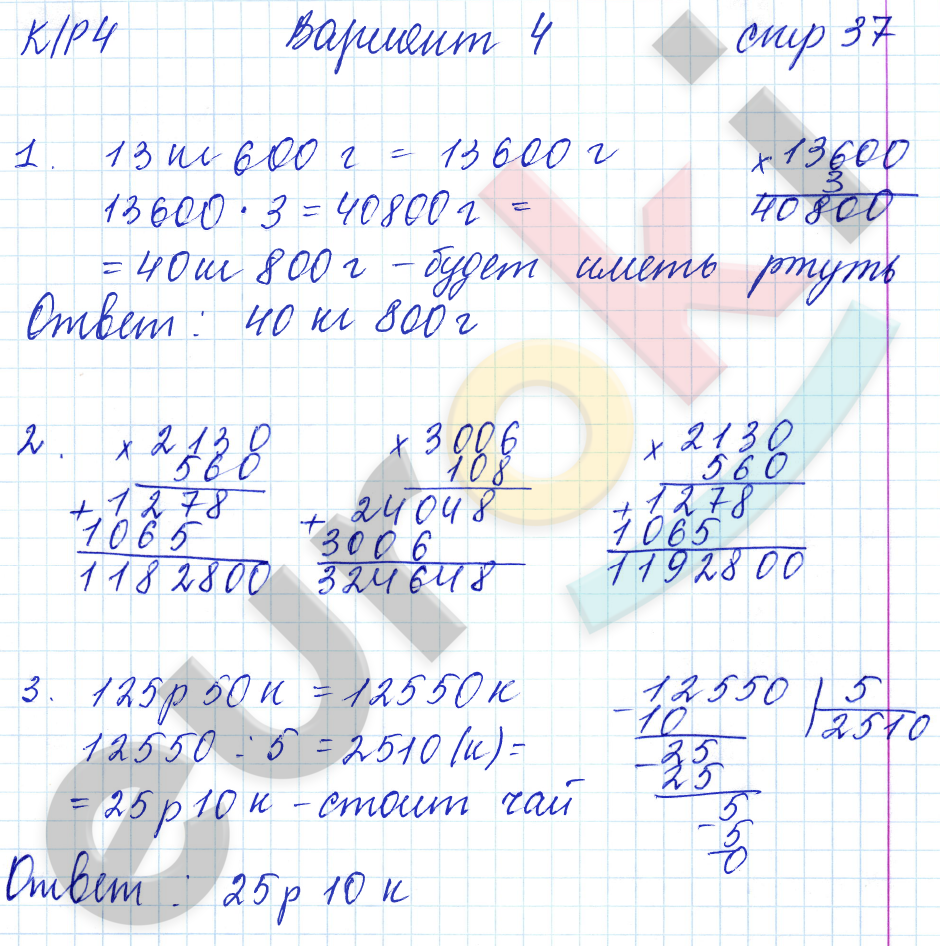 К/Р4 Вариант 4 стр 37
1. 13 кг 600 г = 13600 г
13600 · 3 = 40800 г =
= 40 кг 800 г – будет иметь ртуть
× 13600
3
40800
Ответ: 40 кг 800 г
2.
× 2130
560
+ 1278
1065
1182800
× 3006
108
+ 24048
3006
324648
× 2130
560
+ 1278
1065
1192800
3. 125 р 50 к = 12550 к
12550 : 5 = 2510 (к) =
= 25 р 10 к – стоит чай
- 12550 | 5
10 2510
- 25
25
- 5
5
0
Ответ: 25 р 10 к
euroki